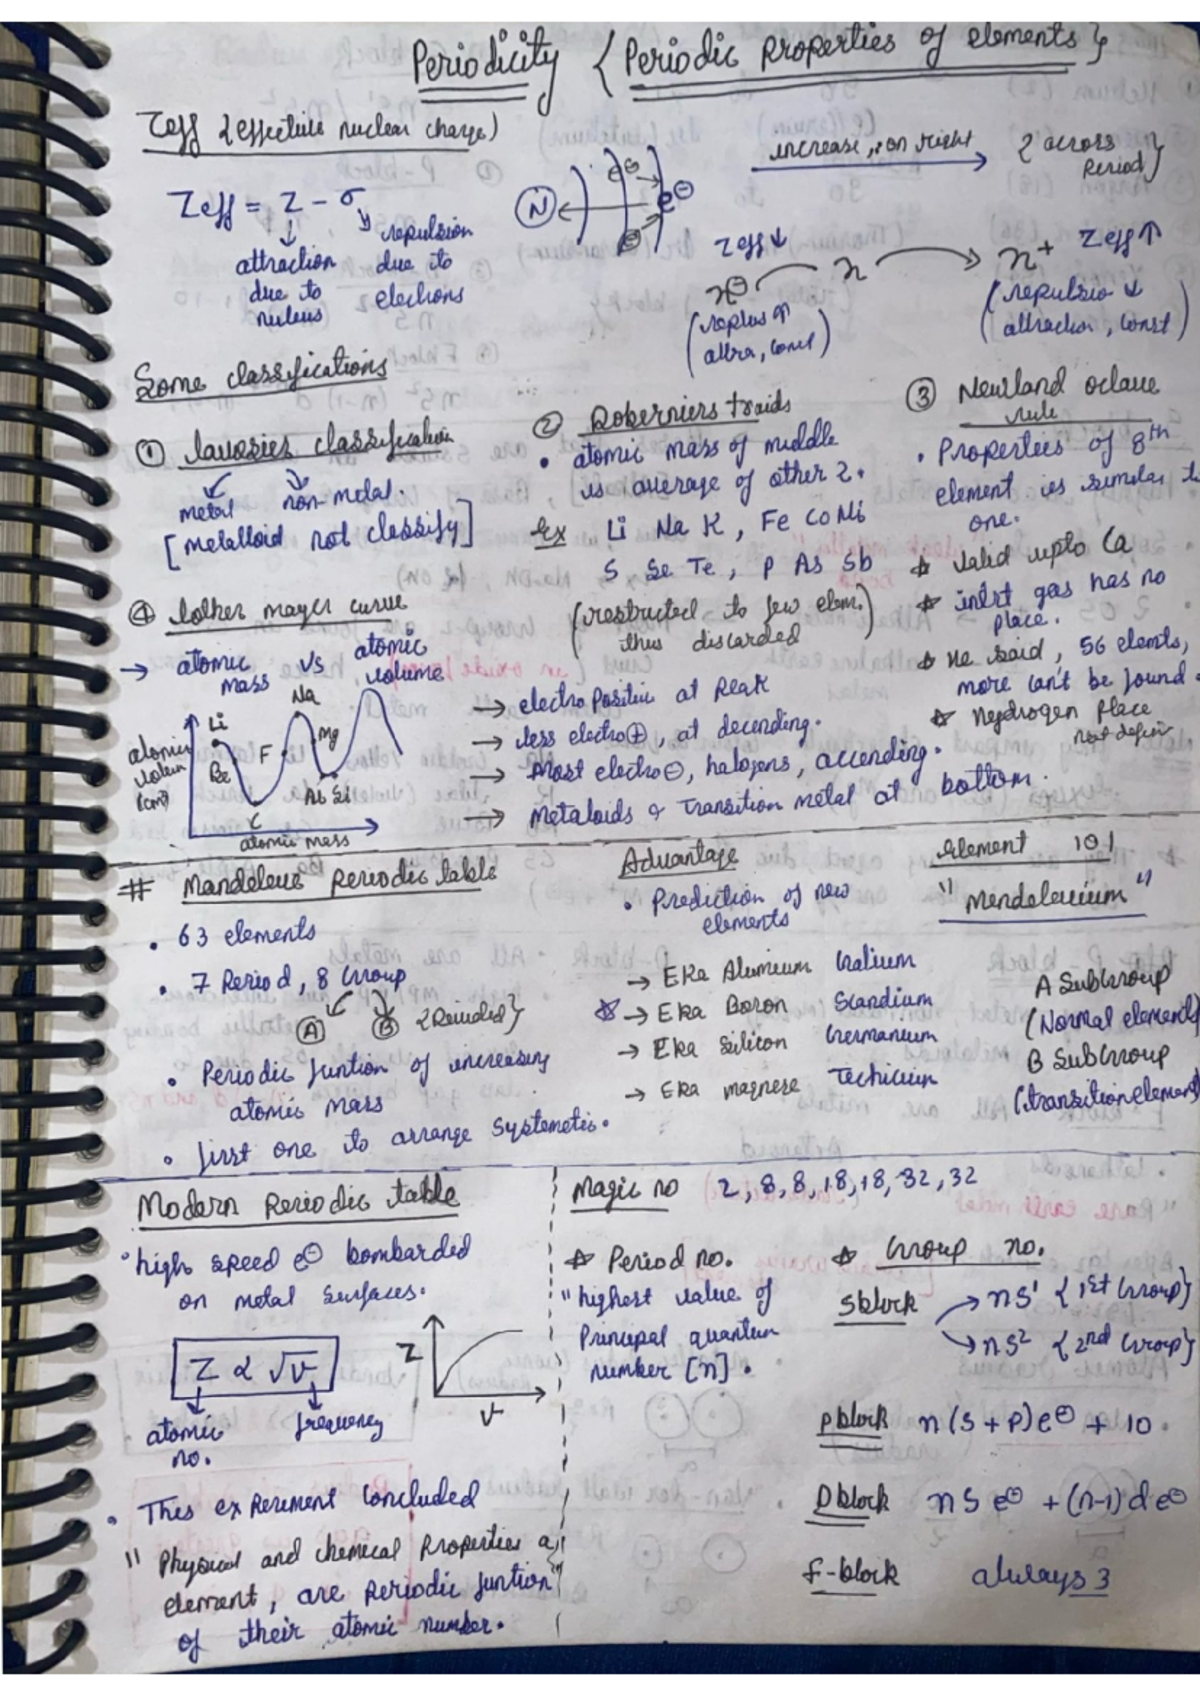 Periodicity { Periodic Properties of elements }
Zeff { effective nuclear charge)
increase, on right { across Period }
Zeff = Z - σ
attraction due to nucleus
repulsion due to electrons
N e⊖ e⊖ e⊖
Zeff↓ Zeff↑
n⊖ n n+
attra, const)
(repulsio ↓
attraction, const)
Some classifications
① classification
metal non-metal.
[metalloid not classify]
② Doberniers traids
• atomic mass of middle
is average of other 2.
Ex Li Na K, Fe Co Ni
S Se Te, P As Sb
(restructed to few elem.)
thus discarded
③ Newland octave
rule
• Properties of 8th
element is similar t
one.
☆ Valid upto Ca
☆ inert gas has no
place.
☆ He said, 56 elemts,
more can't be found.
☆ Hydrogen place
not defin
④ Lother mayer curve
→ atomic mass vs atomic volume
Li Na Mg F Be Al Si C
atomic
(cm³)
atomic mass
→ electropositive at Peak
→ less electro⊕, at decending.
→ Most electro⊖, halogens, accending.
→ Metaloids & Transition metal at bottom.
# Mandeleus Periodic table
• 63 elements
• 7 Period, 8 Group
A B
• Periodic funtion of increasing
atomic mass
• first one to arrange systemetic.
Advantage
• Prediction of new
elements
→ Eka Alumeum Galium
☆ → Eka Boron Scandium
→ Eka Silicon Germanium
→ Eka magnese Techicium
Element 101
"Mendelevium"
A SubGroup
(Normal elements)
B SubGroup
(transition element)
Modern Periodic table
• high speed e⊖ bombarded
on metal surfaces.
Z ∝ √ν
atomic no. frequency
Z
ν
• This experement concluded
" Physical and chemical Properties of
element, are Periodic funtion"
of their atomic number.
Magic no 2, 8, 8, 18, 18, 32, 32
☆ Period no.
"highest value of
Principal quantum
number [n].
☆ Group no.
S block → ns¹ { 1st Group}
→ ns² { 2nd Group}
P block n(S+P)e⊖ + 10
D block ns e⊖ + (n-1)d e⊖
f-block always 3